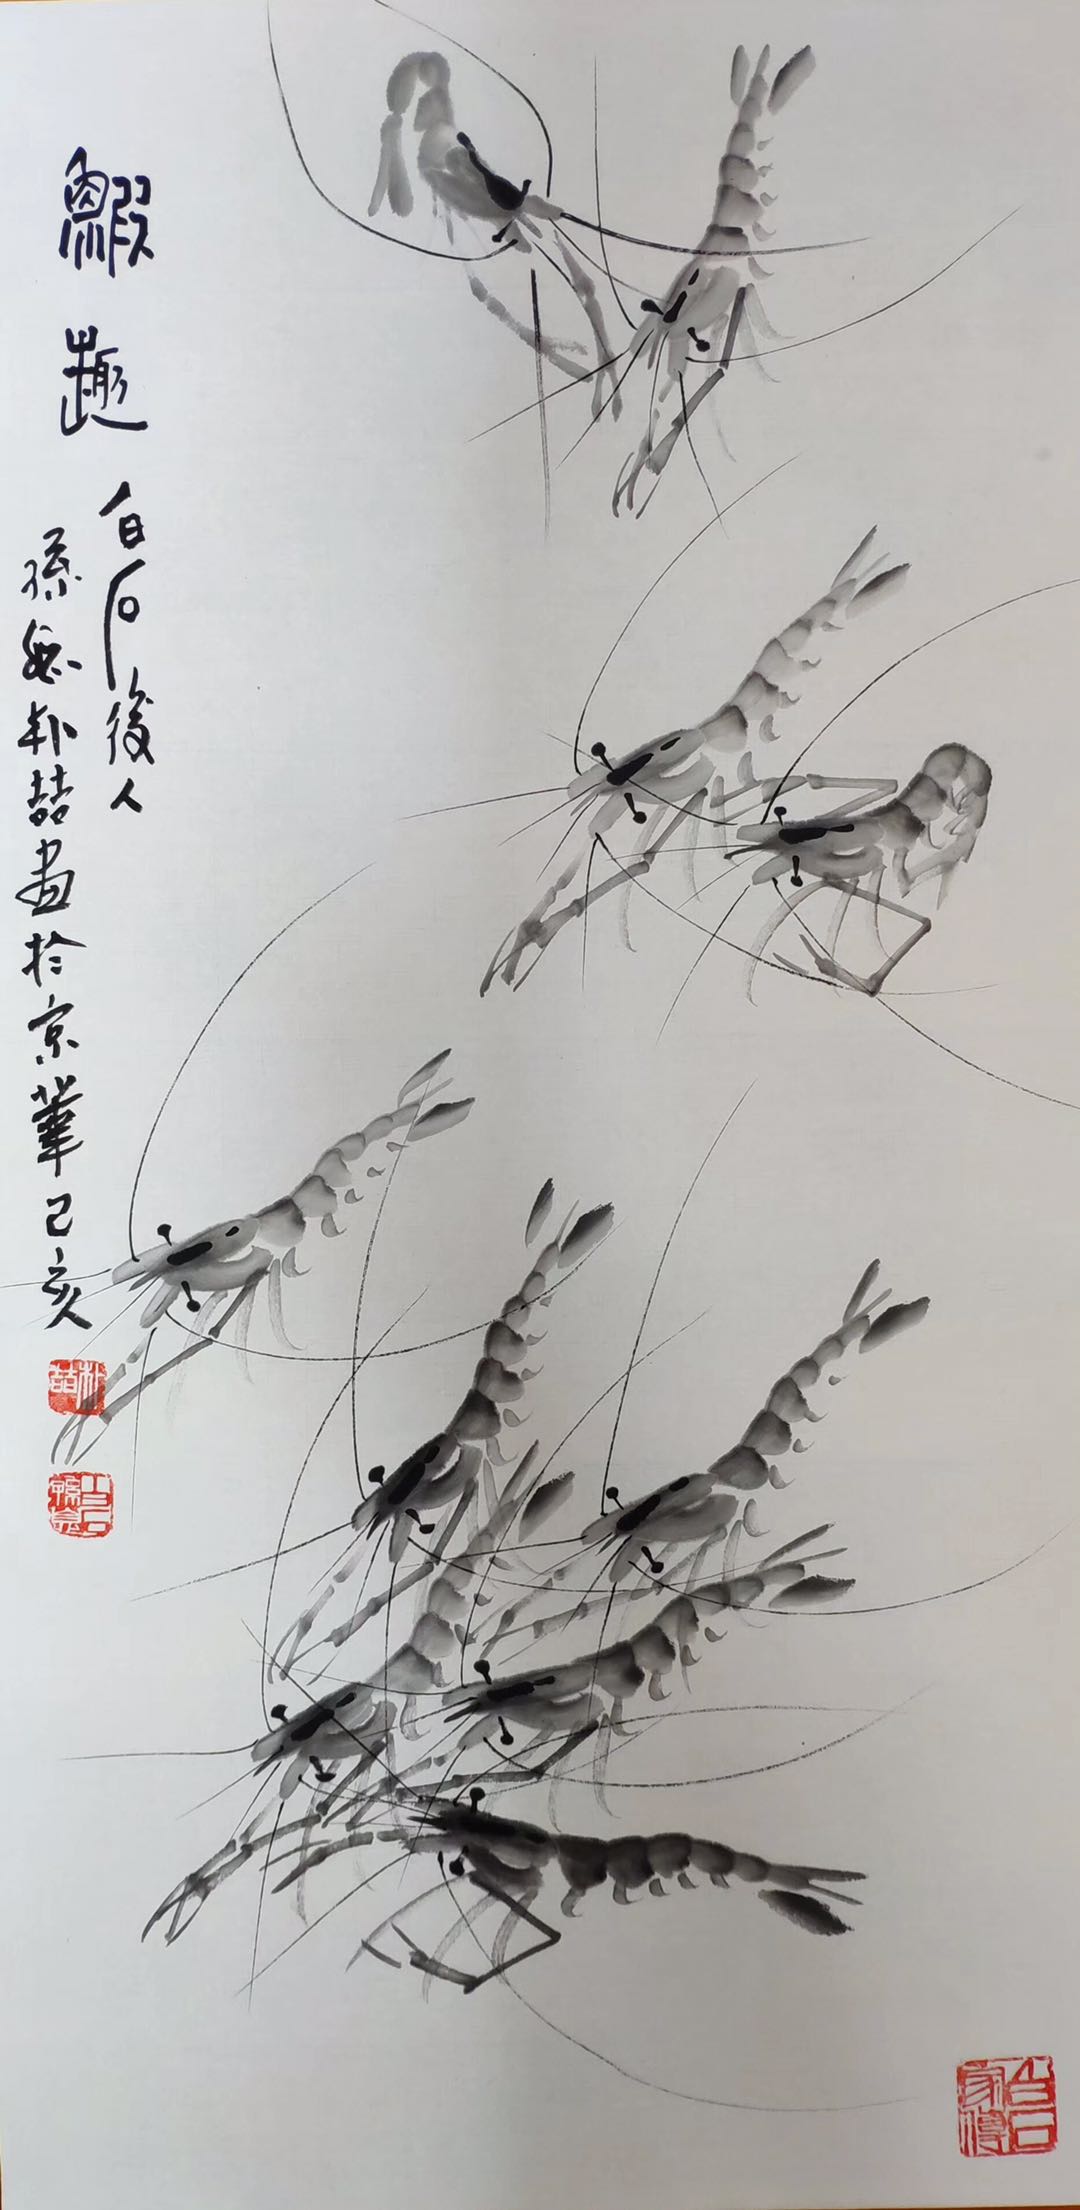 鰕趣
白石後人
孫 朴喆畫於京華己亥
朴喆
白石家傳